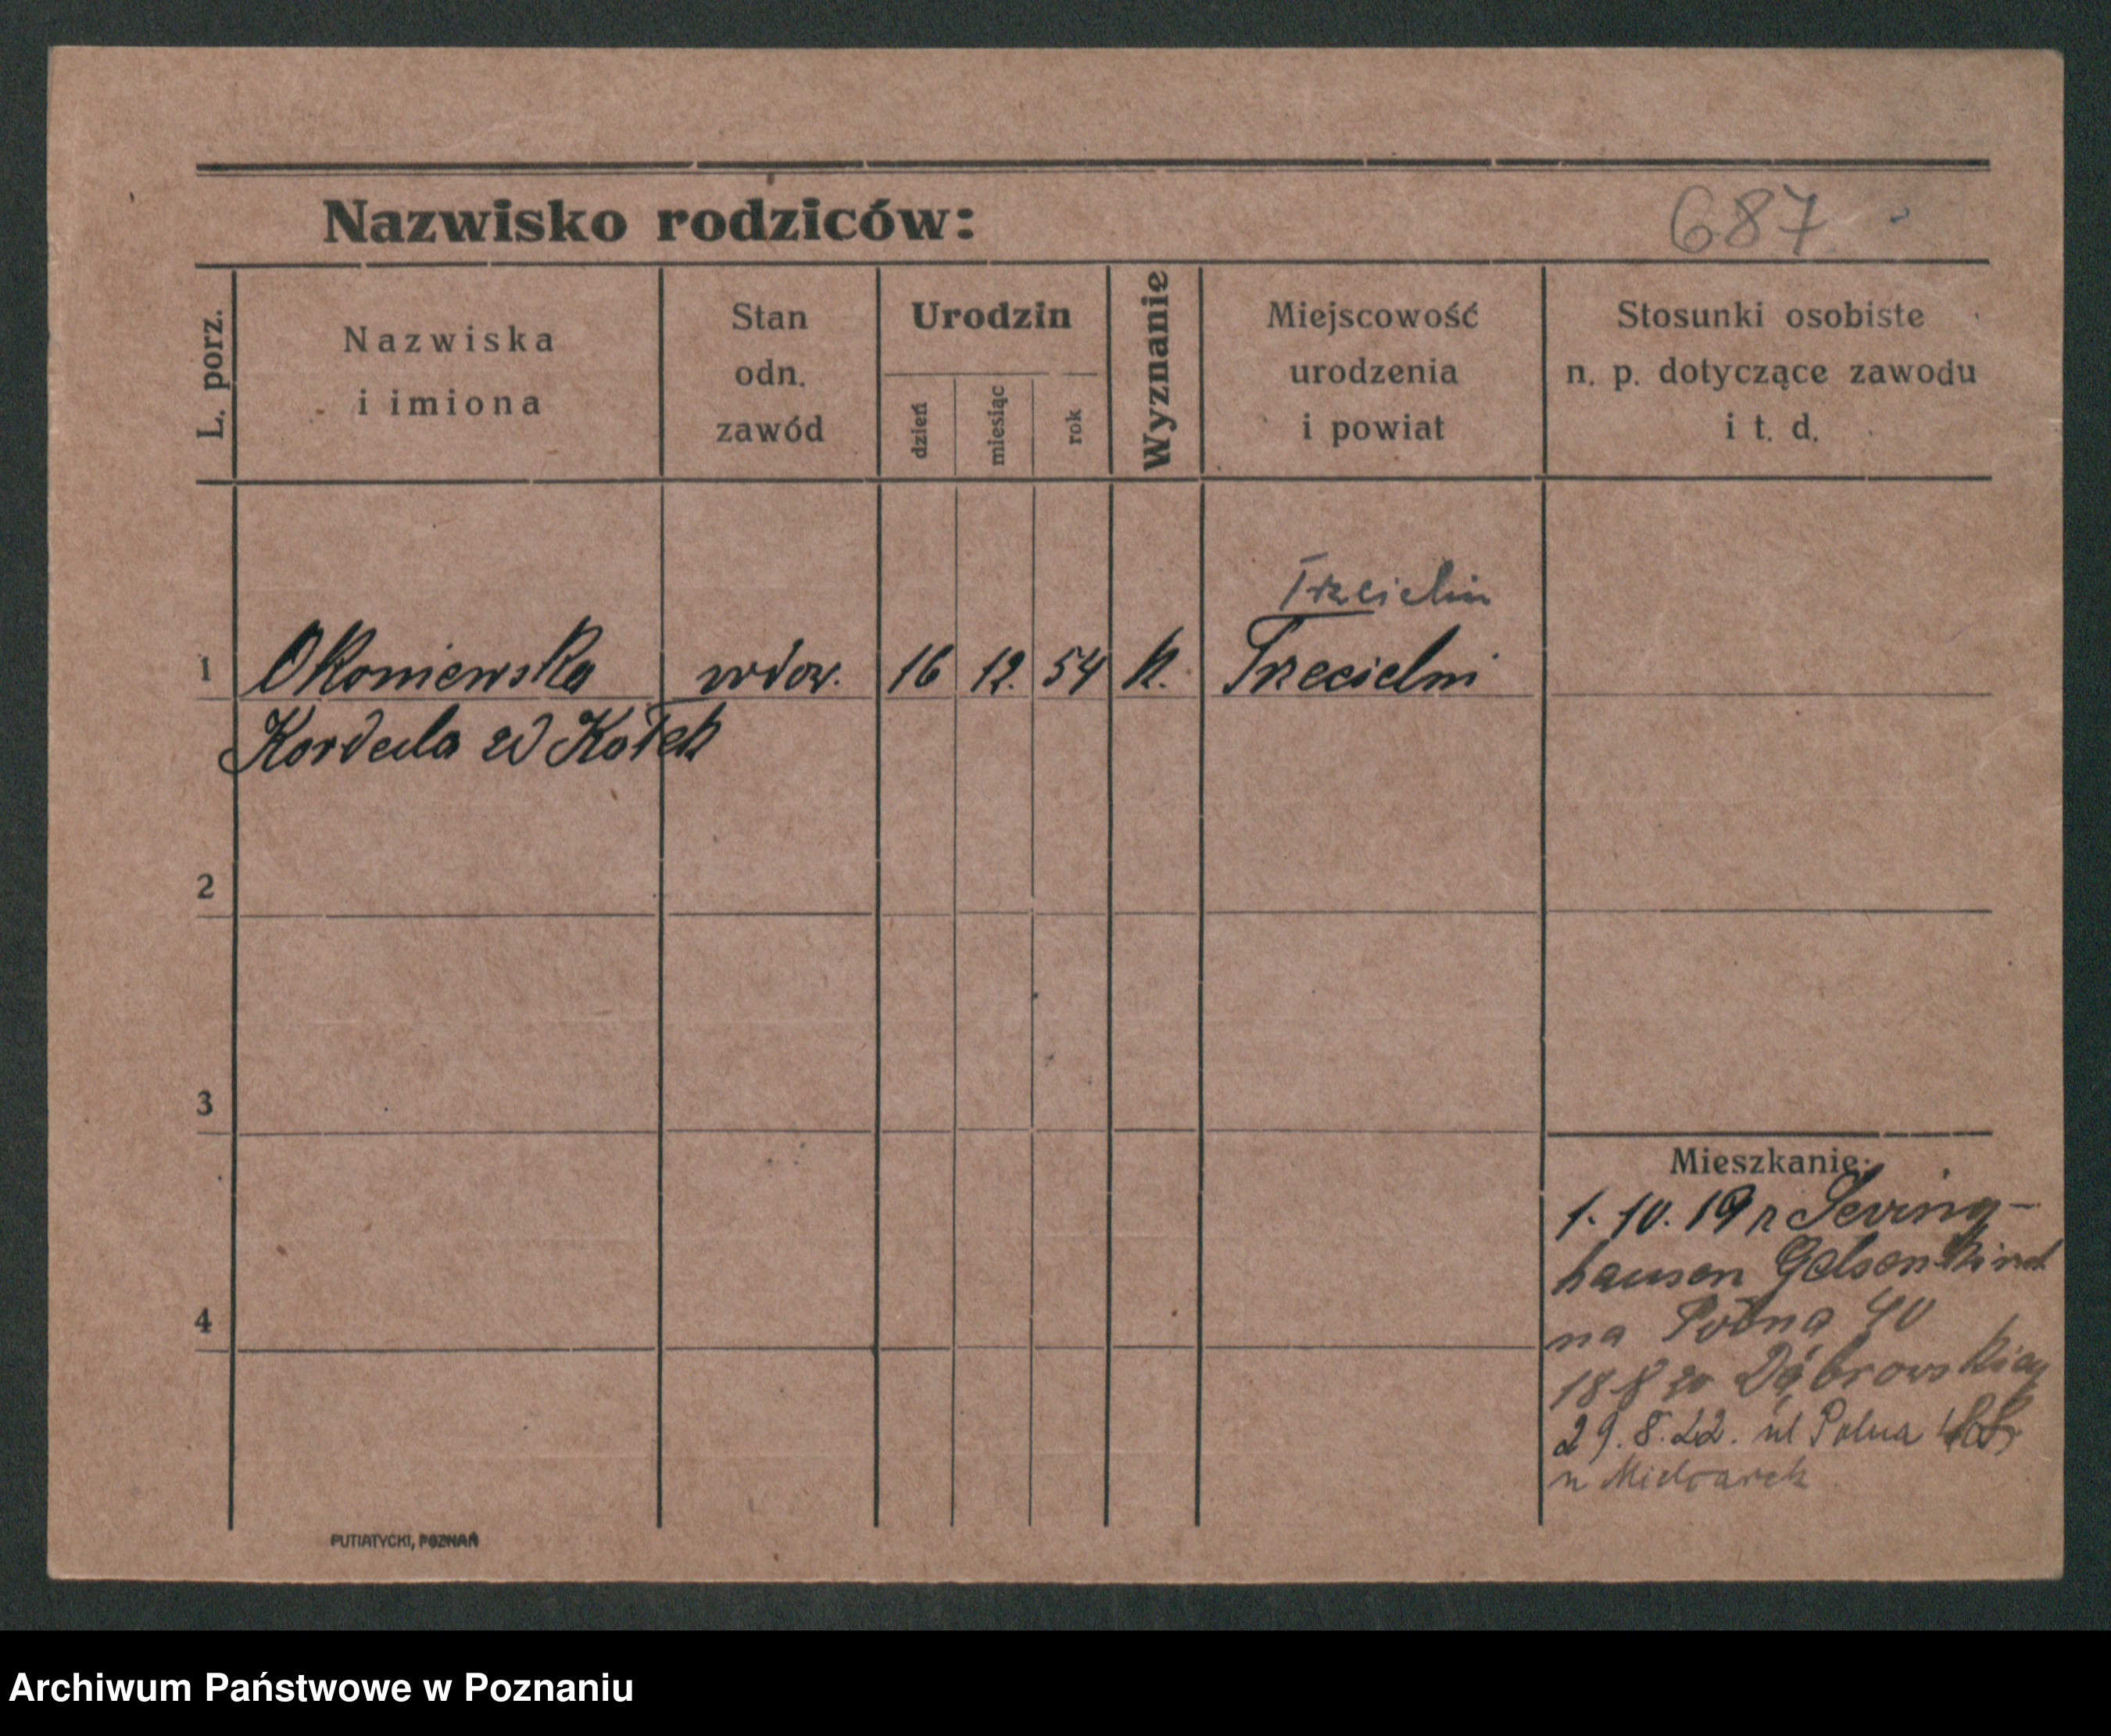 Nazwisko rodziców:
687
L. porz.
Nazwiska
i imiona
Stan
odn.
zawód
Urodzin
dzień
miesiąc
rok
Wyznanie
Miejscowość
urodzenia
i powiat
Stosunki osobiste
n. p. dotyczące zawodu
i t. d.
Trzcielin
1 Okoniewska wdow. 16 12. 54 k. Trzecielni
Kordula
2
3
4
Mieszkanie:
1.10.19 r Sevring-
hausen Gelsenkirch
na Polna 40
18 8 20 Dąbrowskieg
29.8.22. ul Polna
u Mielcarek
PUTIATYCKI, POZNAŃ
Archiwum Państwowe w Poznaniu